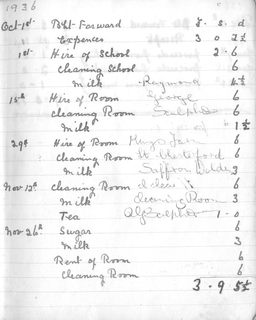 1936
Oct 1st Bht Forward £ s. d
Expences 3 0 7½
1st Hire of School 2. 6
Cleaning School 6
Milk Raymond 4½
15th Hire of Room George 6
Cleaning Room Sculpher 6
Milk 1½
29th Hire of Room 6
Cleaning Room 6
Milk Saffron Walden 3
Nov 12th Cleaning Room 6
Milk Cleaning Room 3
Tea Alf Sculpher 1. 0
Nov 26th Sugar 6
Milk 3
Rent of Room 6
Cleaning Room 6
3. 9 5½